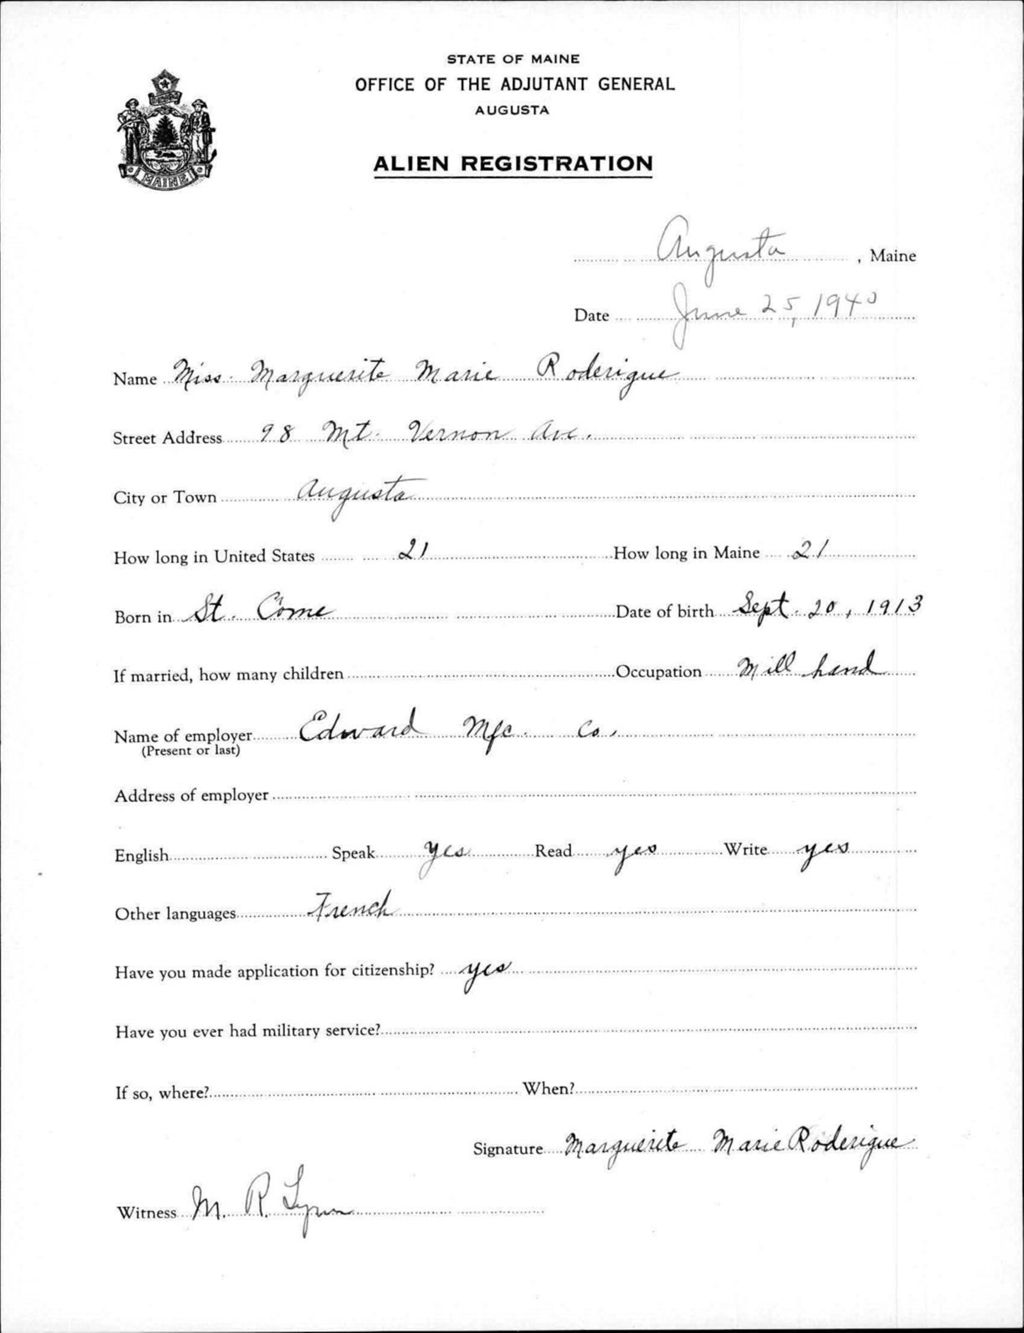 STATE OF MAINE
OFFICE OF THE ADJUTANT GENERAL
AUGUSTA
ALIEN REGISTRATION
MAINE
Augusta, Maine
Date June 25, 1940
Name Miss. Marguerite Marie Roderigue
Street Address 98 Mt. Vernon Ave.
City or Town Augusta
How long in United States 21 How long in Maine 21
Born in St. Come Date of birth Sept. 20, 1913
If married, how many children Occupation Mill hand
Name of employer Edward Mfc. Co.
(Present or last)
Address of employer
English Speak yes Read yes Write yes
Other languages French
Have you made application for citizenship? yes
Have you ever had military service?
If so, where? When?
Signature Marguerite Marie Roderigue
Witness M. R. Lynn